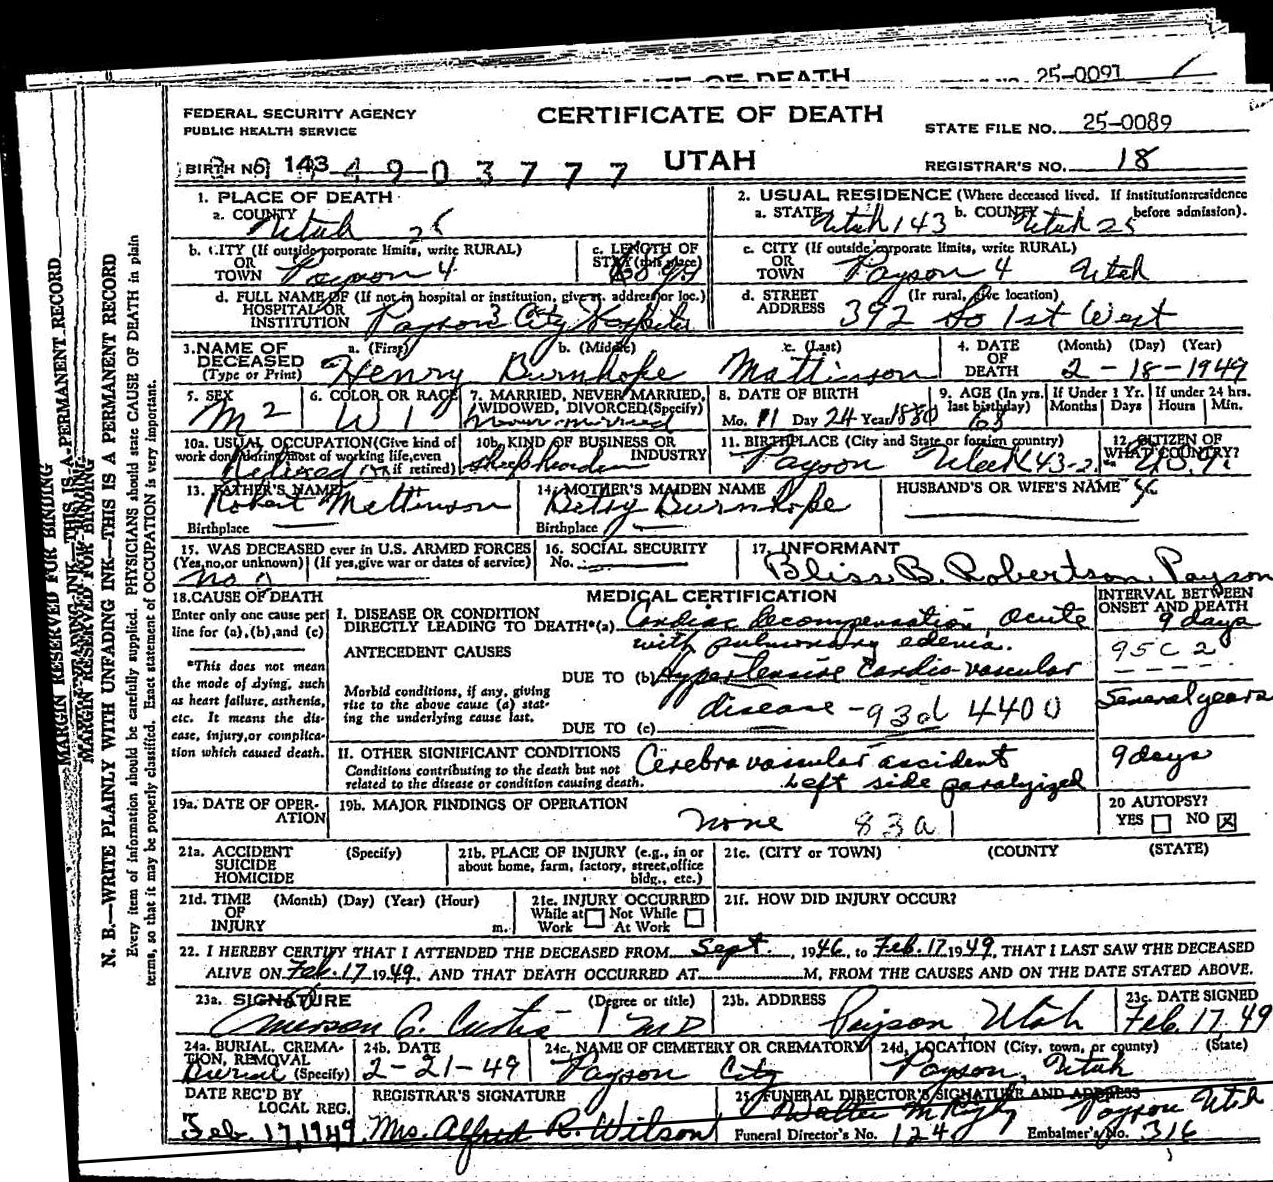 OF DEATH 25-0091
FEDERAL SECURITY AGENCY
PUBLIC HEALTH SERVICE
CERTIFICATE OF DEATH
STATE FILE NO. 25-0089
BIRTH NO. 143 4 9 0 3 7 7 7
UTAH
REGISTRAR'S NO. 18
1. PLACE OF DEATH
a. COUNTY Utah 25
2. USUAL RESIDENCE (Where deceased lived. If institution: residence before admission).
a. STATE Utah 143 b. COUNTY Utah 25
b. CITY (If outside corporate limits, write RURAL)
OR
TOWN Payson 4
c. LENGTH OF
STAY (this place)
c. CITY (If outside corporate limits, write RURAL)
OR
TOWN Payson 4 Utah
d. FULL NAME OF (If not in hospital or institution, give st. address or loc.)
HOSPITAL OR
INSTITUTION Payson City Hospital
d. STREET (If rural, give location)
ADDRESS 392 So 1st West
3. NAME OF
DECEASED
(Type or Print)
a. (First) b. (Middle) c. (Last)
Henry Burnhope Mattinson
4. DATE
OF
DEATH
(Month) (Day) (Year)
2-18-1949
5. SEX
M 2
6. COLOR OR RACE
W 1
7. MARRIED, NEVER MARRIED,
WIDOWED, DIVORCED (Specify)
Never married
8. DATE OF BIRTH
Mo. 11 Day 24 Year 1880
9. AGE (In yrs.
last birthday)
68
If Under 1 Yr.
Months Days
If under 24 hrs.
Hours Min.
10a. USUAL OCCUPATION (Give kind of
work done during most of working life, even
if retired)
Retired
10b. KIND OF BUSINESS OR
INDUSTRY
11. BIRTHPLACE (City and State or foreign country)
Payson Utah 143-2
12. CITIZEN OF
WHAT COUNTRY?
13. FATHER'S NAME
Robert Mattinson
Birthplace
14. MOTHER'S MAIDEN NAME
Betsy Burnhope
Birthplace
HUSBAND'S OR WIFE'S NAME
15. WAS DECEASED ever in U.S. ARMED FORCES
(Yes, no, or unknown) (If yes, give war or dates of service)
no
16. SOCIAL SECURITY
No.
17. INFORMANT
Bliss B. Robertson, Payson
18. CAUSE OF DEATH
Enter only one cause per
line for (a), (b), and (c)
*This does not mean
the mode of dying, such
as heart failure, asthenia,
etc. It means the dis-
ease, injury, or complica-
tion which caused death.
MEDICAL CERTIFICATION
INTERVAL BETWEEN
ONSET AND DEATH
I. DISEASE OR CONDITION
DIRECTLY LEADING TO DEATH*(a) Cardiac Decompensation, acute
with pulmonary edema.
9 days
95C 2
ANTECEDENT CAUSES
DUE TO (b) Hypertensive Cardio-vascular
disease - 93d 4400
Several years
Morbid conditions, if any, giving
rise to the above cause (a) stat-
ing the underlying cause last.
DUE TO (c)
II. OTHER SIGNIFICANT CONDITIONS
Conditions contributing to the death but not
related to the disease or condition causing death.
Cerebro vascular accident
Left side paralyzed
9 days
19a. DATE OF OPER-
ATION
19b. MAJOR FINDINGS OF OPERATION
none 83a
20 AUTOPSY?
YES NO X
21a. ACCIDENT
SUICIDE
HOMICIDE
(Specify)
21b. PLACE OF INJURY (e.g., in or
about home, farm, factory, street, office
bldg., etc.)
21c. (CITY or TOWN) (COUNTY) (STATE)
21d. TIME
OF
INJURY
(Month) (Day) (Year) (Hour)
m.
21e. INJURY OCCURRED
While at Work Not While At Work
21f. HOW DID INJURY OCCUR?
22. I HEREBY CERTIFY THAT I ATTENDED THE DECEASED FROM Sept., 1946, to Feb. 17 1949, THAT I LAST SAW THE DECEASED
ALIVE ON Feb. 17 1949. AND THAT DEATH OCCURRED AT M, FROM THE CAUSES AND ON THE DATE STATED ABOVE.
23a. SIGNATURE (Degree or title)
C. Curtis MD
23b. ADDRESS
Payson Utah
23c. DATE SIGNED
Feb. 17 49
24a. BURIAL, CREMA-
TION, REMOVAL
(Specify)
Burial
24b. DATE
2-21-49
24c. NAME OF CEMETERY OR CREMATORY
Payson City
24d. LOCATION (City, town, or county) (State)
Payson, Utah
DATE REC'D BY
LOCAL REG.
Feb. 17, 1949
REGISTRAR'S SIGNATURE
Mrs. Alfred R. Wilson
25. FUNERAL DIRECTOR'S SIGNATURE AND ADDRESS
Walter Payson Utah
Funeral Director's No. 124 Embalmer's No. 316
MARGIN RESERVED FOR BINDING
N. B.—WRITE PLAINLY WITH UNFADING INK—THIS IS A PERMANENT RECORD
Every item of information should be carefully supplied. PHYSICIANS should state CAUSE OF DEATH in plain
terms, so that it may be properly classified. Exact statement of OCCUPATION is very important.